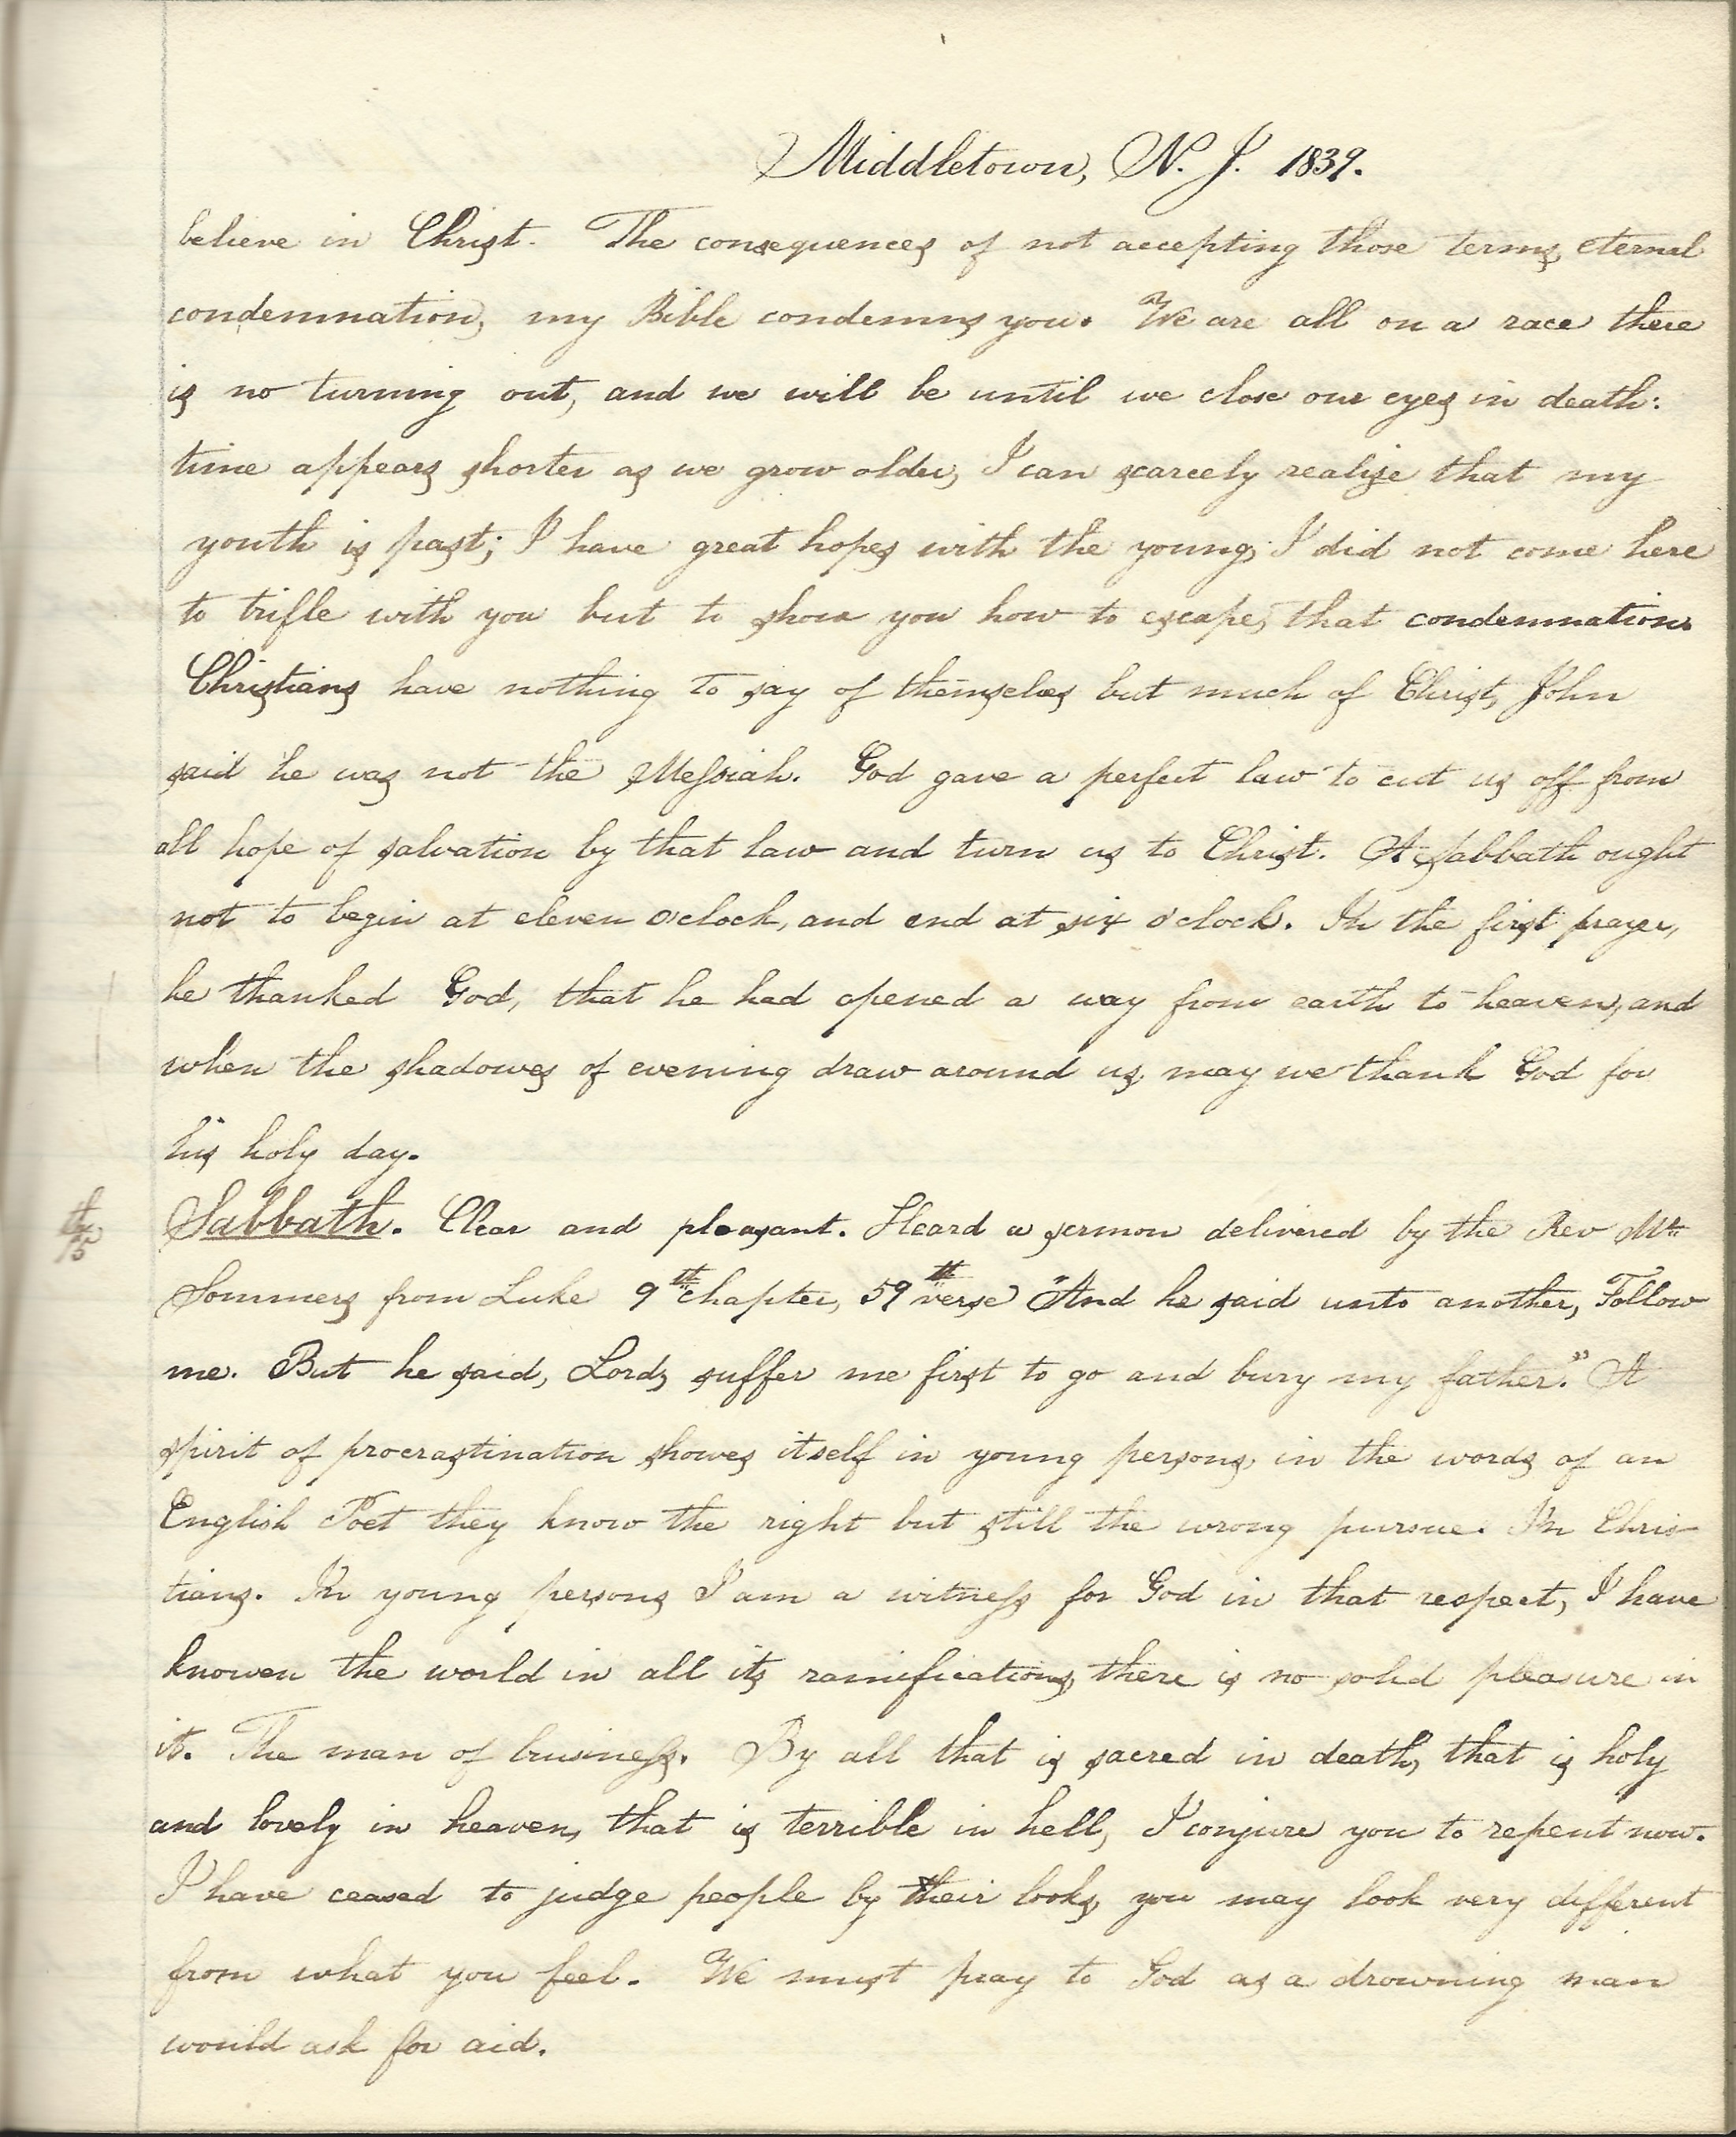 Middletown, N. J. 1839.
believe in Christ. The consequences of not accepting those terms, eternal
condemnation, my Bible condemns you. We are all on a race there
is no turning out, and we will be until we close our eyes in death:
time appears shorter as we grow older, I can scarcely realize that my
youth is past; I have great hopes with the young; I did not come here
to trifle with you but to show you how to escape, that condemnation.
Christians have nothing to say of themselves but much of Christ, John
said he was not the Messiah. God gave a perfect law to cut us off from
all hope of salvation by that law and turn us to Christ. A Sabbath ought
not to begin at eleven o'clock, and end at six o'clock. In the first prayer,
he thanked God, that he had opened a way from earth to heaven, and
when the shadowes of evening draw around us, may we thank God for
his holy day.
15th Sabbath. Clear and pleasant. Heard a sermon delivered by the Rev Mr
Sommers from Luke 9th chapter, 59th verse "And he said unto another, Follow
me. But he said, Lord, suffer me first to go and bury my father." A
spirit of procrastination showes itself in young persons, in the words of an
English Poet they know the right but still the wrong pursue. In Chris
tians. In young persons I am a witness for God in that respect, I have
knowen the world in all its ramifications, there is no solid pleasure in
it. The man of business. By all that is sacred in death, that is holy
and lovely in heaven, that is terrible in hell, I conjure you to repent now.
I have ceased to judge people by their looks, you may look very different
from what you feel. We must pray to God as a drowning man
would ask for aid.